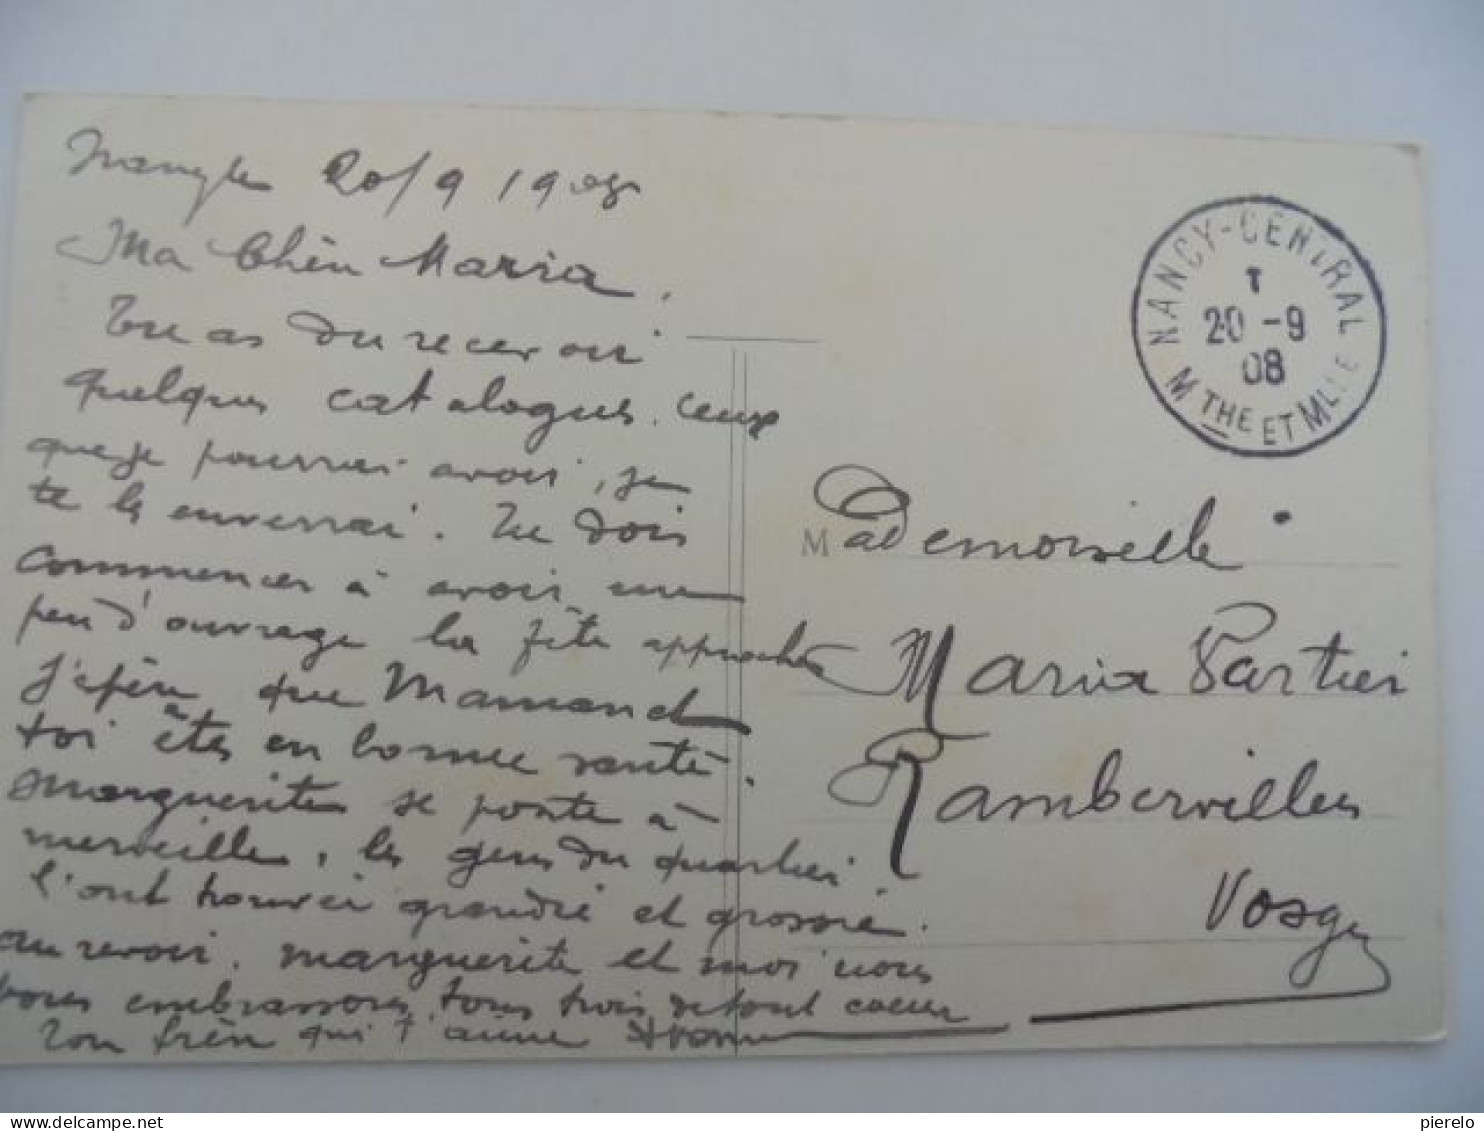 20/9 1908
Ma Chère Maria,
Tu as du recevoir
quelques catalogues. Ceux
que je pourrai avoir, je
te les enverrai. Tu dois
commencer à avoir un
peu d'ouvrage la fête approche
J'espère que Maman et
toi êtes en bonne santé.
Marguerite se porte à
merveille, les gens du quartier
l'ont trouvée grandie et grossie.
au revoir. Marguerite et moi nous
vous embrassons tous trois de tout coeur
Ton frère qui t'aime
NANCY-CENTRAL
20 -9
08
MTHE ET MLLE
Mademoiselle
Maria Partier
Rambervillers
Vosges
delcampe.net
pierelo